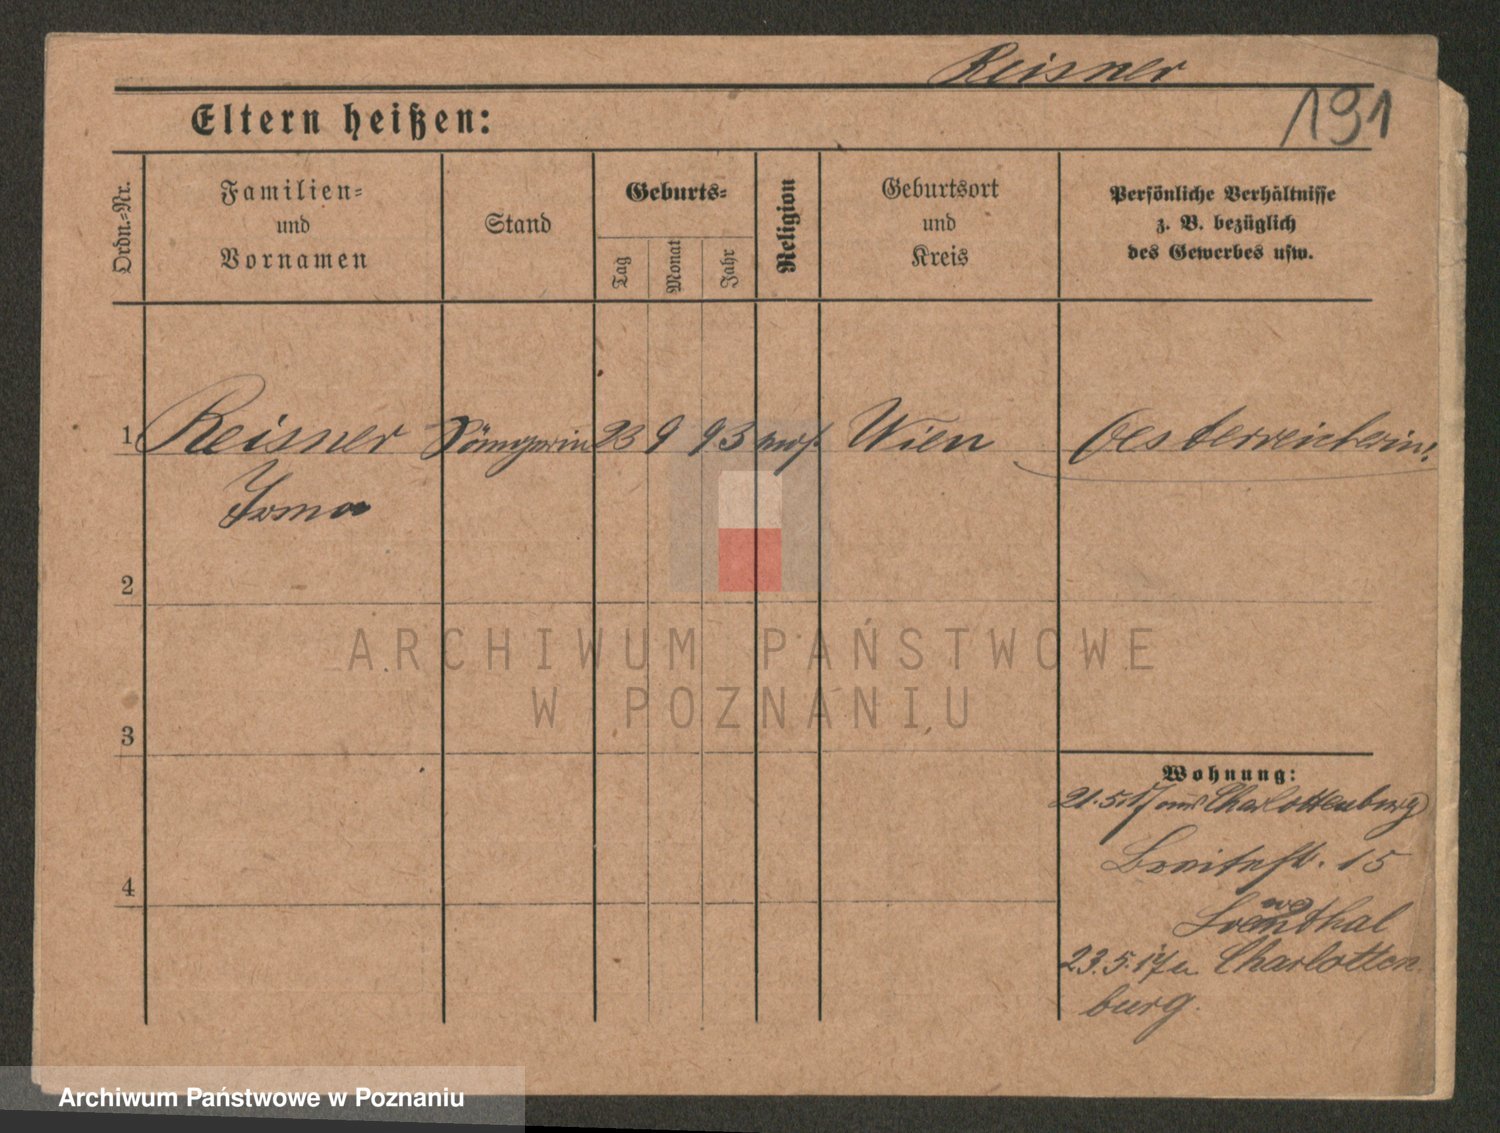 Reisner
191
Eltern heißen:
Ordn.-Nr.
Familien-
und
Vornamen
Stand
Geburts-
Tag
Monat
Jahr
Religion
Geburtsort
und
Kreis
Persönliche Verhältnisse
z. B. bezüglich
des Gewerbes usw.
1 Reisner Sängerin 23 9 93 mos. Wien Oesterreicherin
Irma
2
3
4
Wohnung:
21.5.17 aus Charlottenburg
Breitestr. 15
23.5.17 n Charlotten
burg.
ARCHIWUM PAŃSTWOWE
W POZNANIU
Archiwum Państwowe w Poznaniu